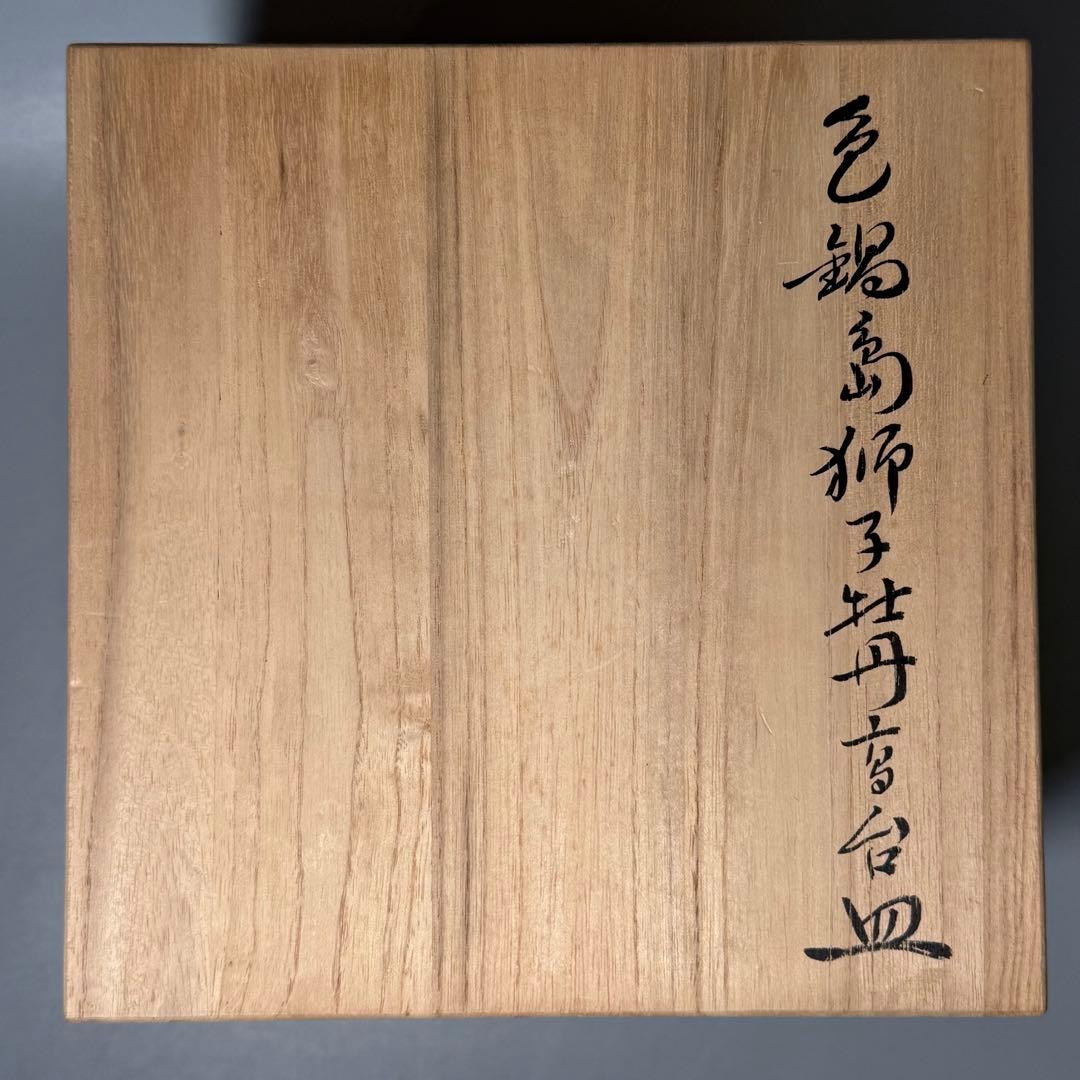 色鍋島獅子牡丹高台皿